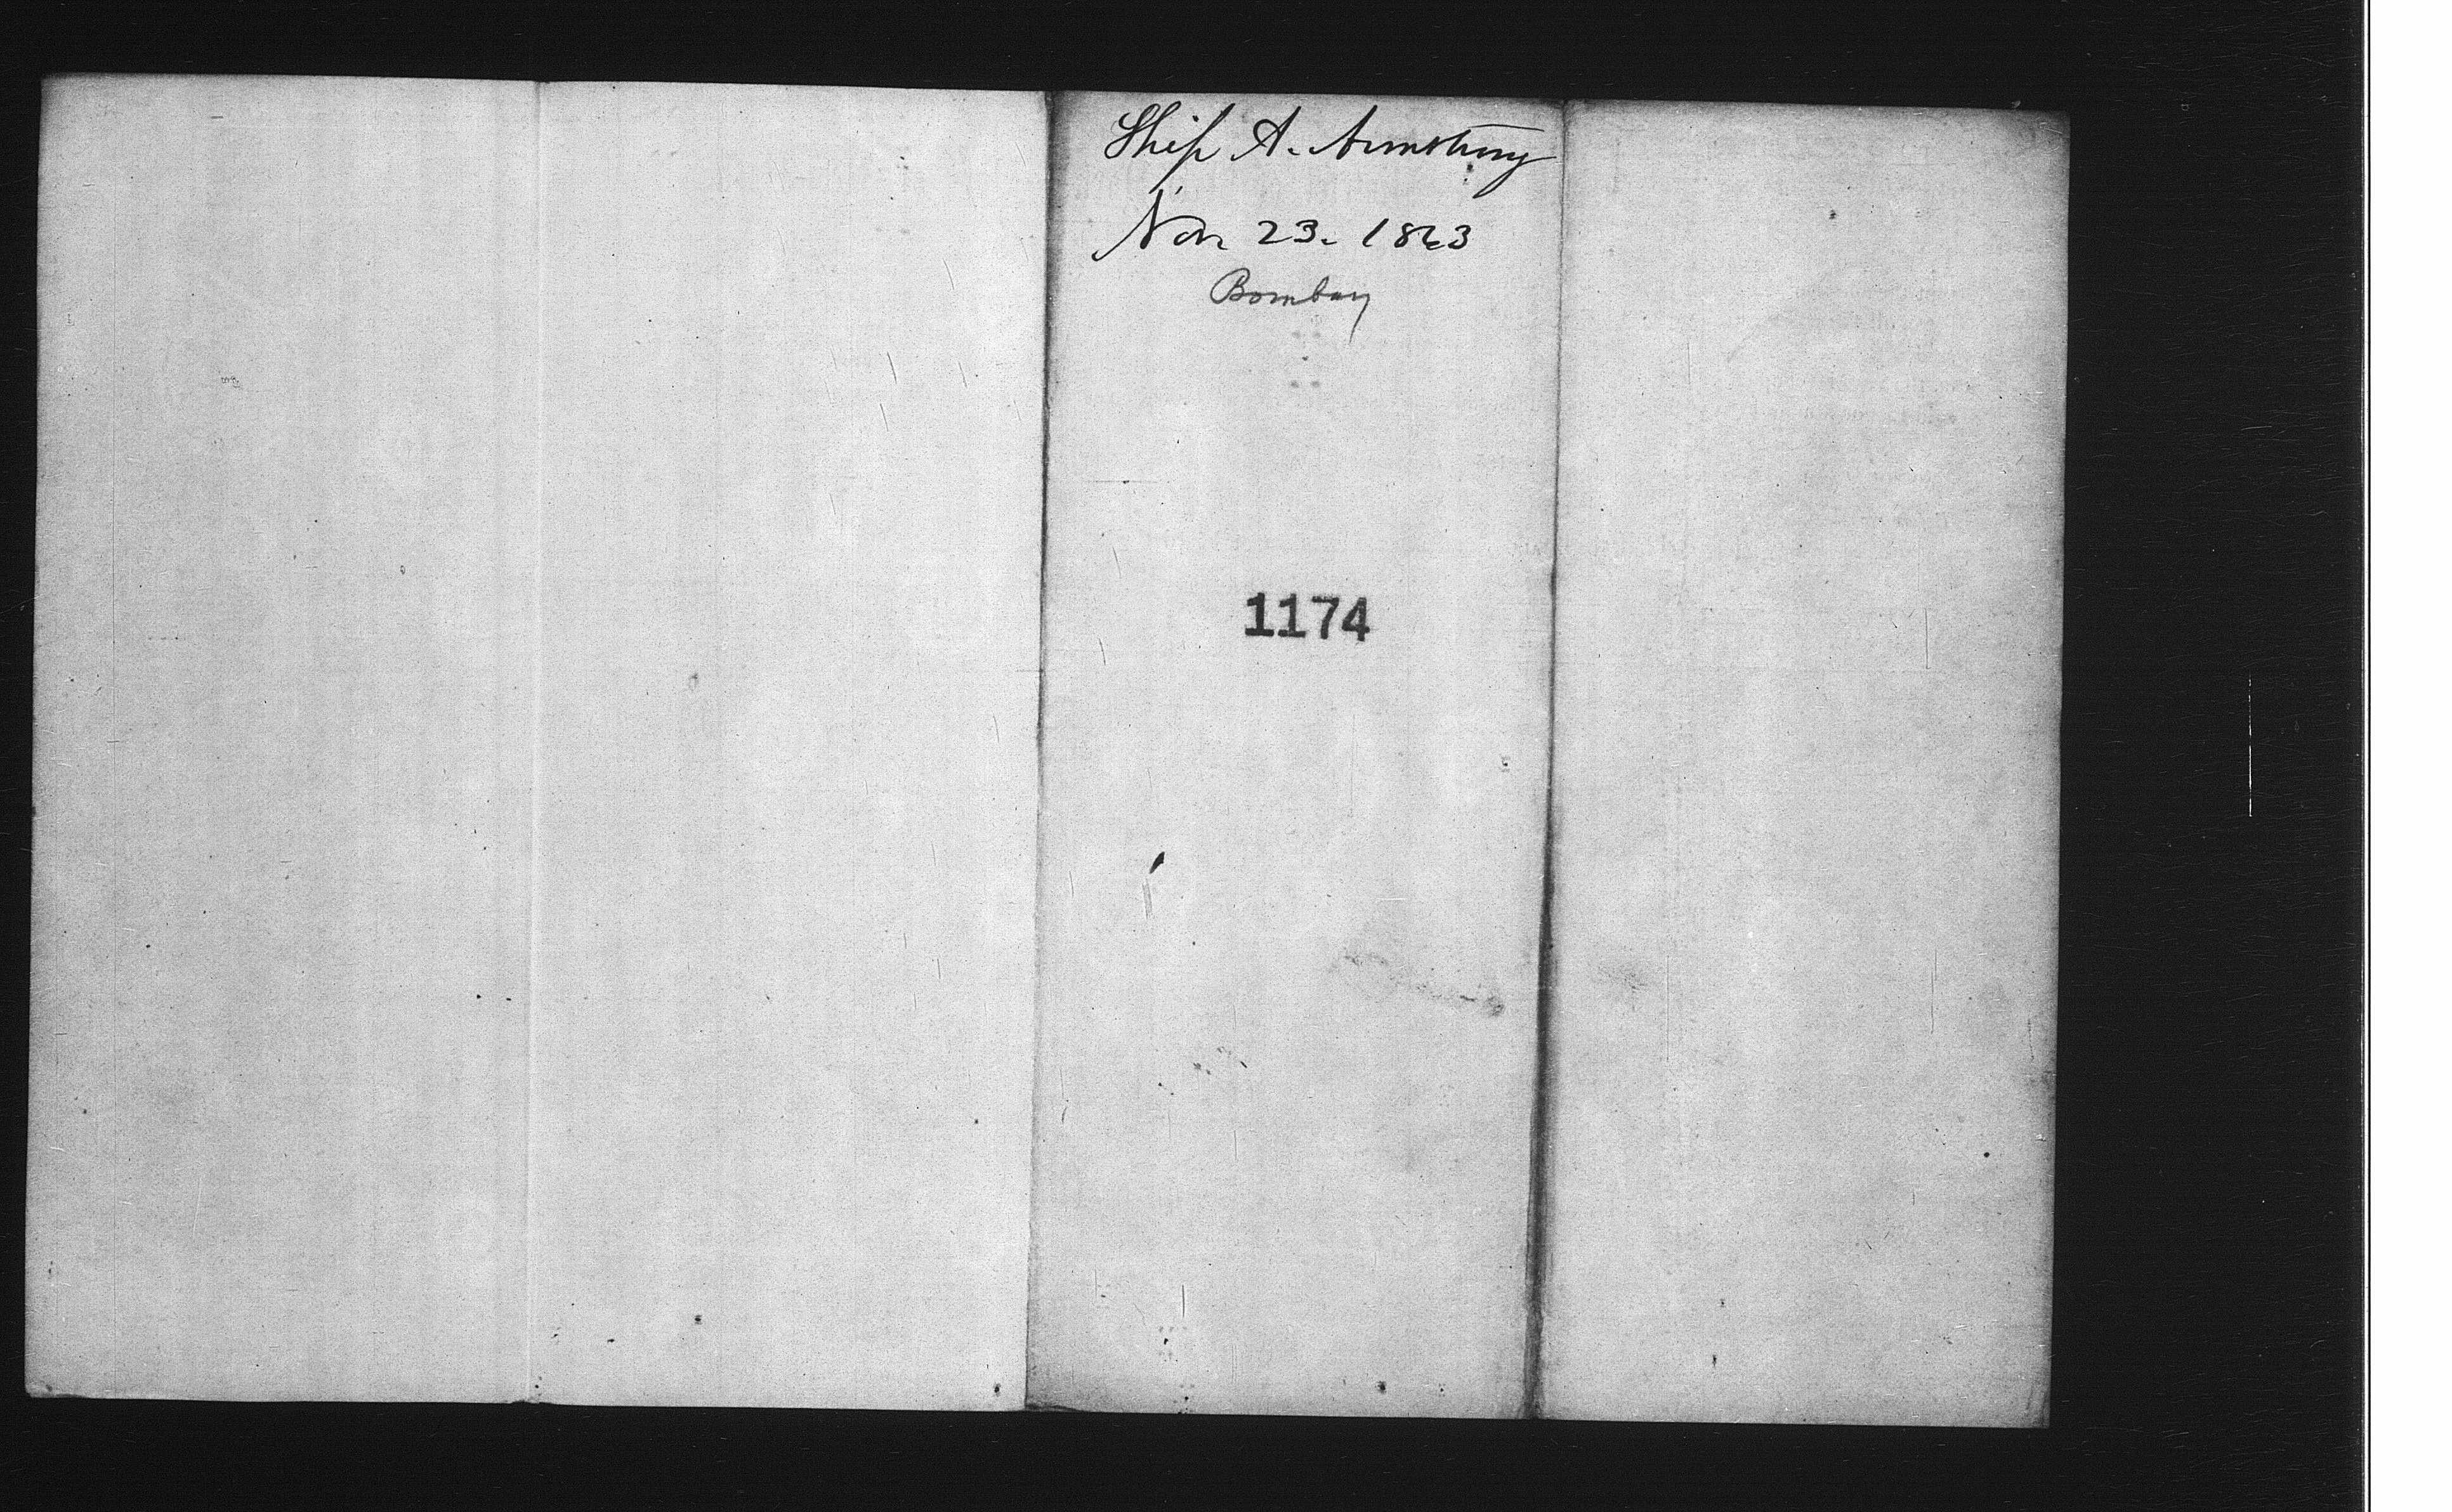 Ship A. Armstrong
Nov 23. 1863
Bombay
1174